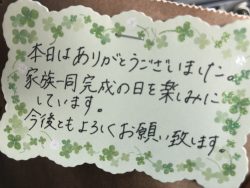 本日はありがとうございました。
家族一同完成の日を楽しみに
しています。
今後ともよろしくお願い致します